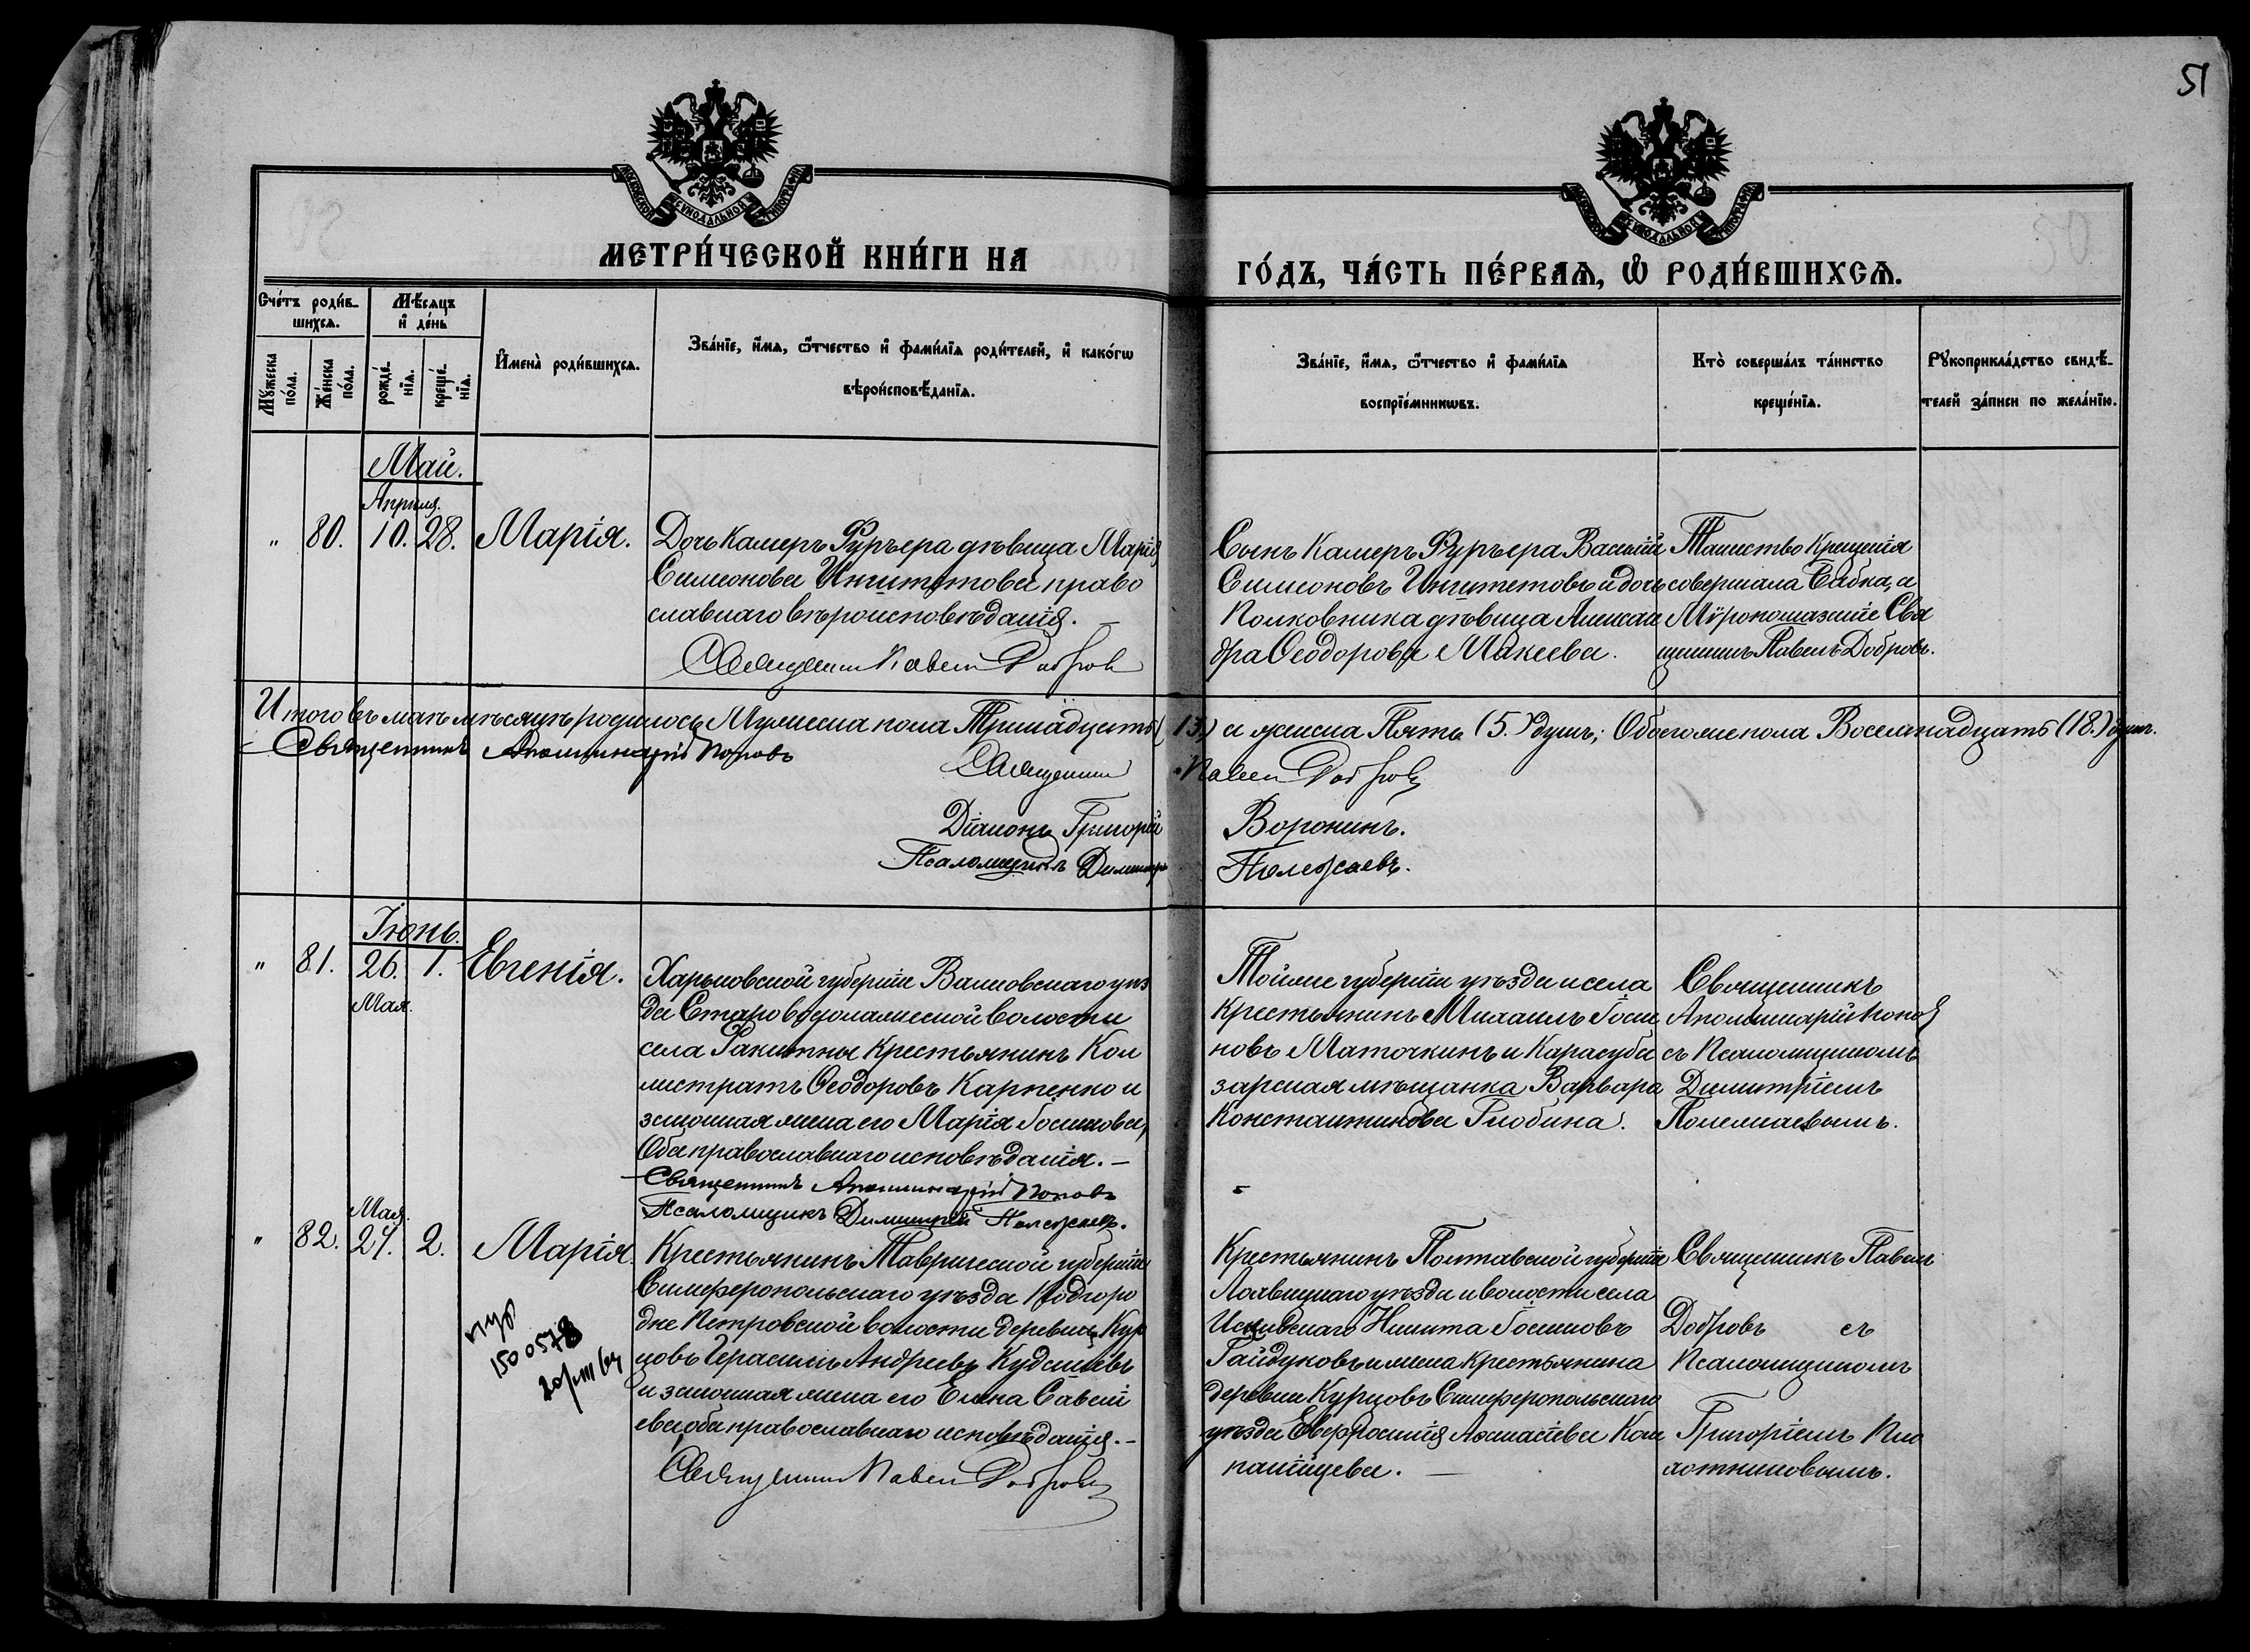 51
МОСКОВСКОЙ СѴНОДАЛЬНОЙ ТИПОГРАФІИ
МОСКОВСКОЙ СѴНОДАЛЬНОЙ ТИПОГРАФІИ
МЕТРИ́ЧЕСКОЙ КНИ́ГИ НА
ГО́ДЪ, ЧА́СТЬ ПЕ́РВАѦ, Ѽ РОДИ́ВШИХСѦ.
Сче́тъ роди́в-
шихсѧ.
Мꙋ́жеска по́ла.
Же́нска по́ла.
Мѣ́сѧцъ и҆ де́нь
рожде́нїѧ.
креще́нїѧ.
И҆мена̀ роди́вшихсѧ.
Зва́нїе, и҆́мѧ, ѻ҆́тчество и҆ фами́лїѧ роди́телей, и҆ како́гѡ
вѣроисповѣ́данїѧ.
Зва́нїе, и҆́мѧ, ѻ҆́тчество и҆ фами́лїѧ
воспрїе́мникѡвъ.
Кто̀ соверша́лъ та́инство
креще́нїѧ.
Рꙋкоприкла́дство свидѣ́-
телей за́писи по жела́нїю.
Май.
Апрѣля.
" 80. 10. 28. Марія.
Дочь Камеръ Фурьера дѣвица Марія
Симеонова право
славнаго вѣроисповѣданія. —
Священникъ Павелъ Добровъ
Сынъ Камеръ Фурьера Василій
Симеоновъ и дочь
Полковника дѣвица Алексан
дра Ѳеодорова Макеева.
Таинство Крещенія
совершала бабка, а
Мѵропомазаніе Свя
щенникъ Павелъ Добровъ.
Итого въ маѣ мѣсяцѣ родилось Мужеска пола Тринадцать (13) а женска Пять (5.) душъ; Обоего же пола Восемнадцать (18.) душъ.
Священникъ Аполлинарій Поповъ
Священникъ Павелъ Добровъ
Діаконъ Григорій Воронинъ.
Псаломщикъ Димитрій Полежаевъ.
Іюнь.
" 81. 26. 1. Евгенія.
Мая.
Харьковской губерніи Валковскаго уѣз
да Староводолажской волости
села Ракитны Крестьянинъ Кал
листратъ Ѳеодоровъ Карпенко и
законная жена его Марія Іосифова,
Оба православнаго исповѣданія. —
Священникъ Аполлинарій Поповъ
Псаломщикъ Димитрій Полежаевъ.
Той же губерніи уѣзда и села
Крестьянинъ Михаилъ Іоси
ковъ Маточкинъ и Карасуба
зарская мѣщанка Варвара
Константинова Глобина.
Священникъ
Аполлинарій Поповъ
съ Псаломщикомъ
Димитріемъ
Полежаевымъ.
Мая.
" 82. 27. 2. Марія.
Крестьянинъ Таврической губерніи
Симферопольскаго уѣзда Подгоро
дне Петровской волости деревни Кур
цовъ Герасимъ Андреевъ
и законная жена его Елена Савель
ева оба православнаго исповѣданія. —
Священникъ Павелъ Добровъ
Крестьянинъ Полтавской губерніи
Лохвицкаго уѣзда и волости села
Никита
Гайдуковъ и жена крестьянина
деревни Курцовъ Симферопольскаго
уѣзда Евфросинія Аѳанасіева Ком
панійцева. —
Священникъ Павелъ
Добровъ съ
Псаломщикомъ
Григоріемъ Пло
хотниковымъ.
150 0578